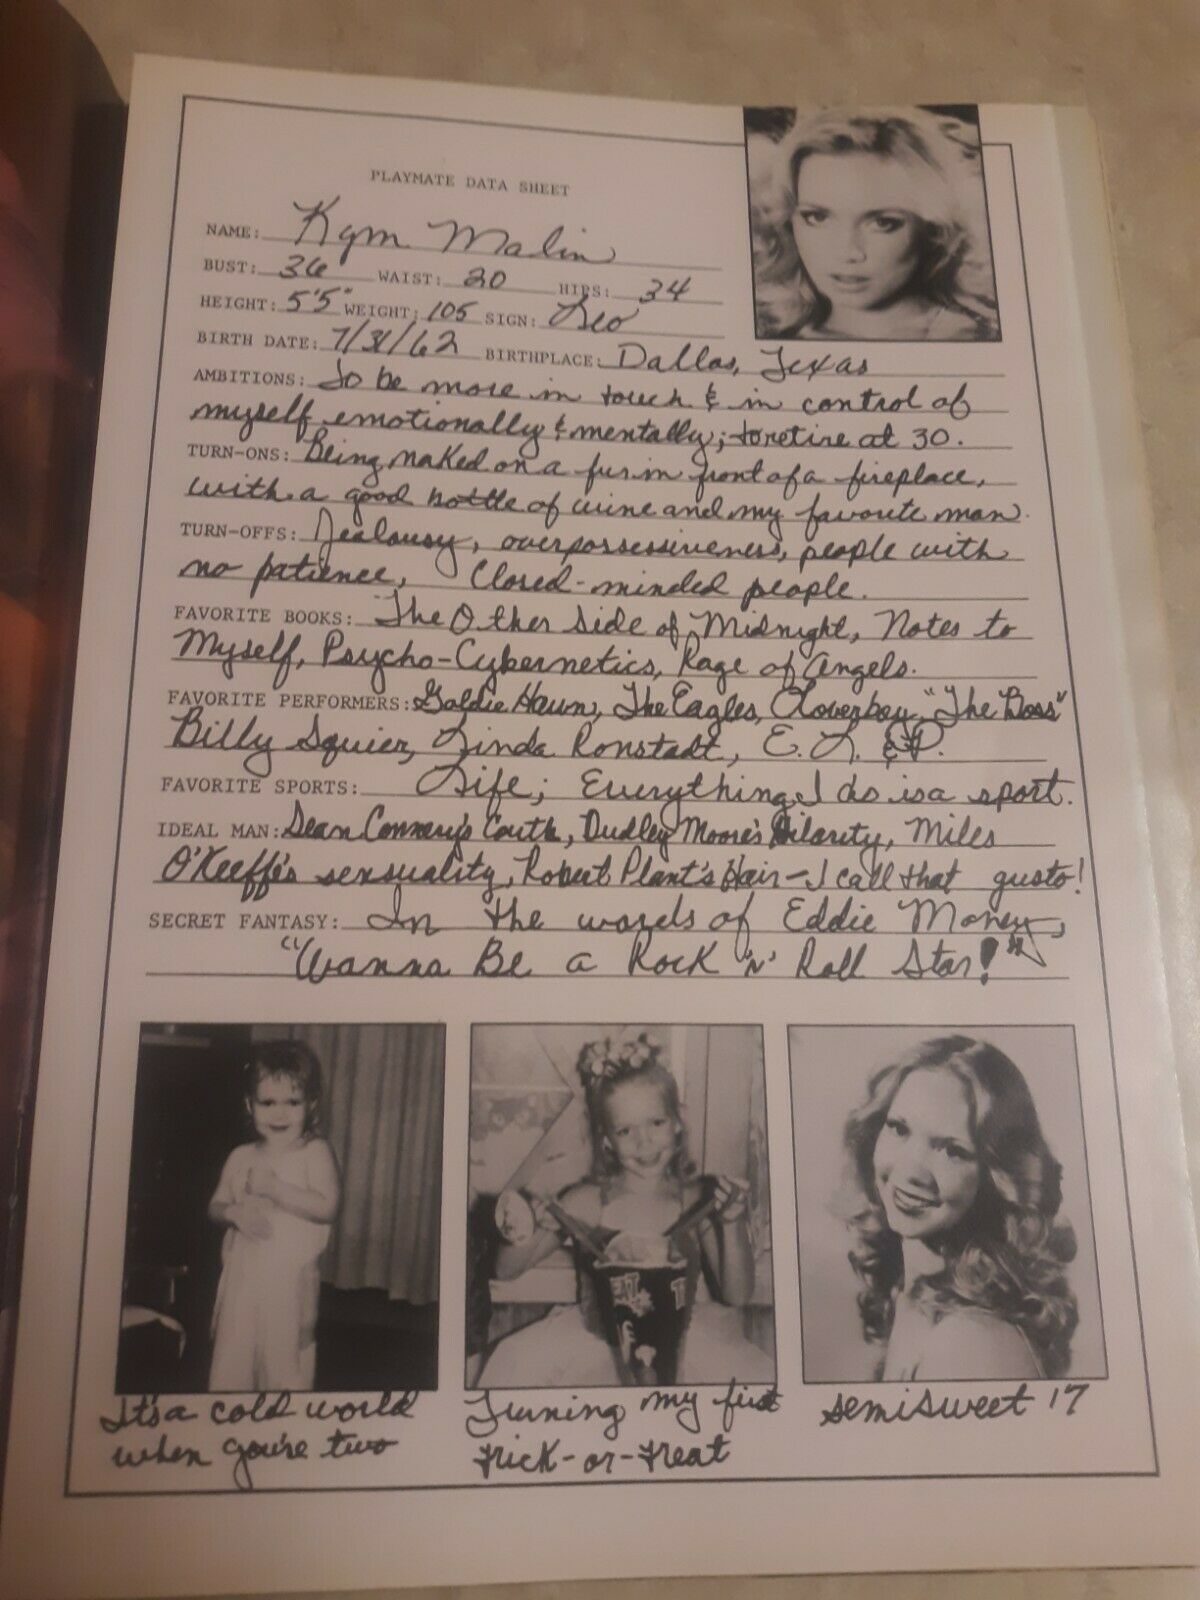 PLAYMATE DATA SHEET
NAME: Kym Malin
BUST: 36 WAIST: 20 HIPS: 34
HEIGHT: 5'5" WEIGHT: 105 SIGN: Leo
BIRTH DATE: 7/31/62 BIRTHPLACE: Dallas, Texas
AMBITIONS: To be more in touch & in control of
myself emotionally & mentally; to retire at 30.
TURN-ONS: Being naked on a fur in front of a fireplace,
with a good bottle of wine and my favorite man.
TURN-OFFS: Jealousy, overpossessiveness, people with
no patience, Closed-minded people.
FAVORITE BOOKS: The Other Side of Midnight, Notes to
Myself, Psycho-Cybernetics, Rage of Angels.
FAVORITE PERFORMERS: Goldie Hawn, The Eagles, Loverboy, "The Boss"
Billy Squier, Linda Ronstadt, E. L. & P.
FAVORITE SPORTS: Life; Everything I do is a sport.
IDEAL MAN: Sean Connery's Couth, Dudley Moore's Hilarity, Miles
O'Keeffe's sensuality, Robert Plant's Hair - I call that gusto!
SECRET FANTASY: In the words of Eddie Money,
"Wanna Be a Rock 'n' Roll Star!"
It's a cold world
when you're two
Turning my first
trick-or-treat
semisweet 17